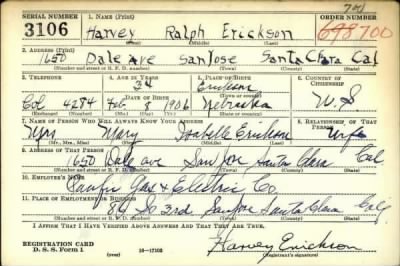 SERIAL NUMBER 1. NAME (Print) ORDER NUMBER
3106 Harvey Ralph Erickson 698700
(First) (Middle) (Last)
2. ADDRESS (Print)
1650 Dale Ave San Jose Santa Clara Cal
(Number and street or R. F. D. number) (Town) (County) (State)
3. TELEPHONE 4. AGE IN YEARS 5. PLACE OF BIRTH 6. COUNTRY OF CITIZENSHIP
34 Ericson
Col 4284 DATE OF BIRTH (Town or county)
Feb 8 1906 Nebraska U. S
(Exchange) (Number) (Mo.) (Day) (Yr.) (State or country)
7. NAME OF PERSON WHO WILL ALWAYS KNOW YOUR ADDRESS 8. RELATIONSHIP OF THAT PERSON
Mrs Mary Isabelle Erickson wife
(Mr., Mrs., Miss) (First) (Middle) (Last)
9. ADDRESS OF THAT PERSON
1650 Dale ave San Jose Santa Clara Cal
(Number and street or R. F. D. number) (Town) (County) (State)
10. EMPLOYER'S NAME
Pacific Gas & Electric Co.
11. PLACE OF EMPLOYMENT OR BUSINESS
86 So 3rd San Jose Santa Clara Calif
(Number and street or R. F. D. number) (Town) (County) (State)
I AFFIRM THAT I HAVE VERIFIED ABOVE ANSWERS AND THAT THEY ARE TRUE.
REGISTRATION CARD
D. S. Form 1 16—17105 Harvey Erickson
(Registrant's signature)